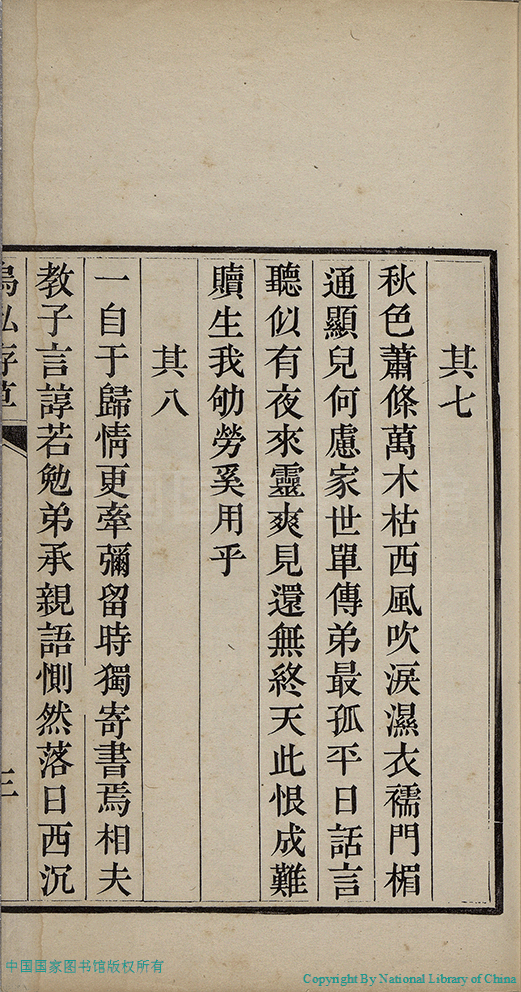 其七
秋色蕭條萬木枯西風吹淚濕衣襦門楣
通顯兒何慮家世單傳弟最孤平日話言
聽似有夜來靈爽見還無終天此恨成難
贖生我劬勞奚用乎
其八
一自于歸情更牽彌留時獨寄書焉相夫
教子言諄若勉弟承親語惻然落日西沉
存草
三
中国国家图书馆版权所有
Copyright By National Library of China